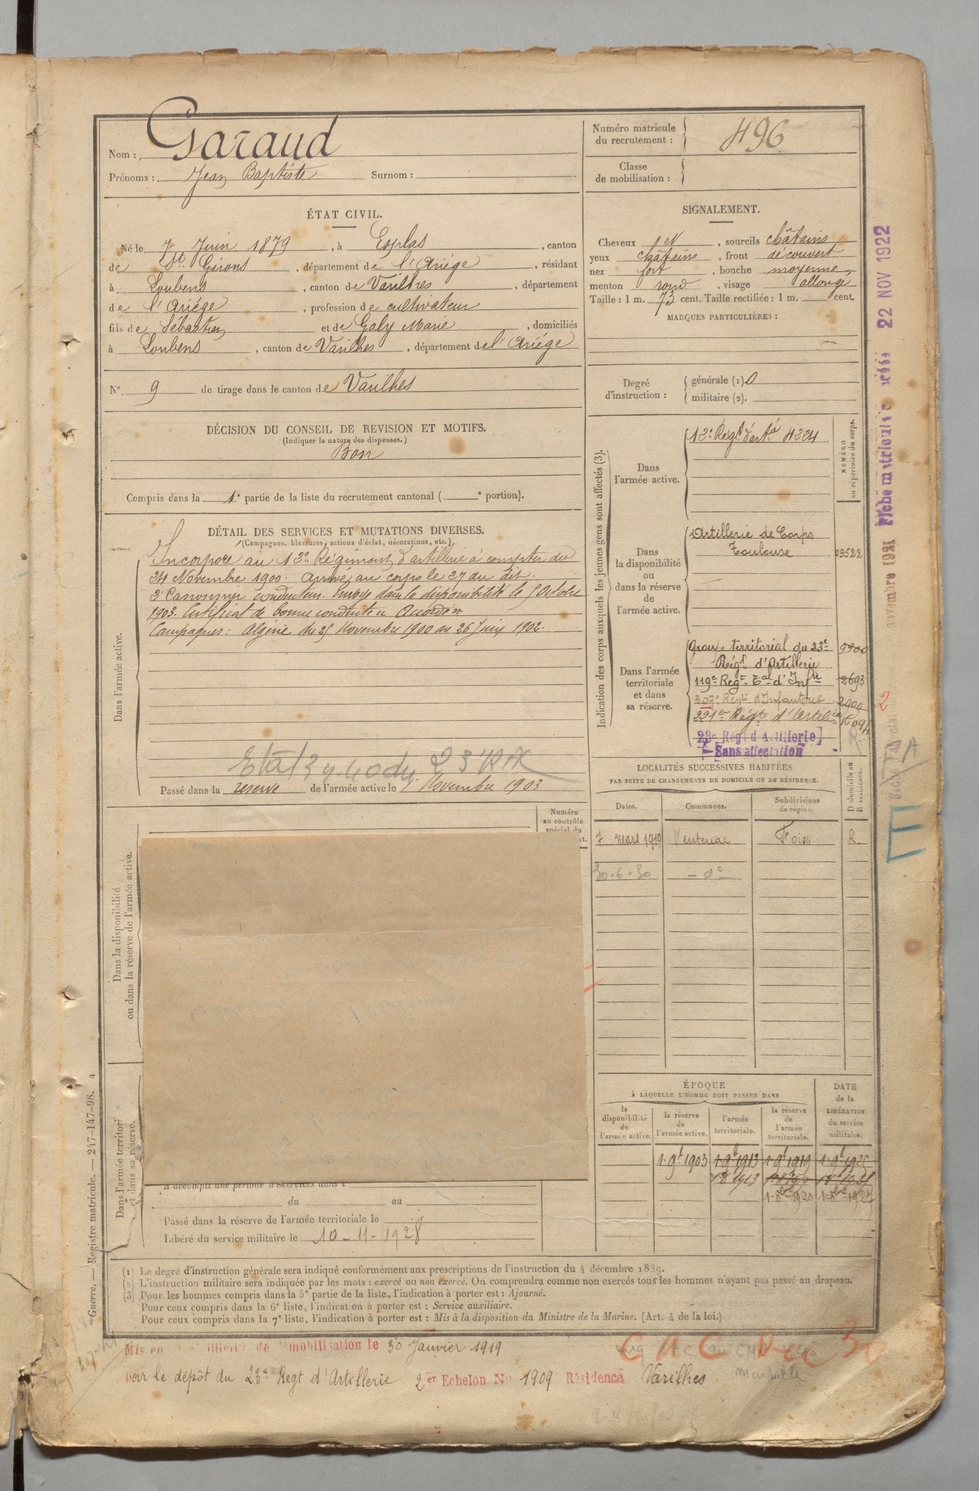 Nom : Garaud
Prénoms : Jean Baptiste Surnom :
Numéro matricule du recrutement : 496
Classe de mobilisation :
ÉTAT CIVIL.
Né le 7 Juin 1879, à Esplas, canton
de St Girons, département de l'Ariège, résidant
à Loubens, canton de Varilhes, département
de l'Ariège, profession de cultivateur
fils de Sébastien et de Galy Marie, domiciliés
à Loubens, canton de Varilhes, département de l'Ariège
N° 9 de tirage dans le canton de Varilhes
DÉCISION DU CONSEIL DE REVISION ET MOTIFS.
(Indiquer la nature des dispenses.)
Bon
Compris dans la 1e partie de la liste du recrutement cantonal ( e portion).
DÉTAIL DES SERVICES ET MUTATIONS DIVERSES.
(Campagnes, blessures, actions d'éclat, décorations, etc.)
Dans l'armée active.
Incorporé au 13e Régiment d'artillerie à compter du
24 Novembre 1900. Arrivé au corps le 27 du dit.
2e Canonnier conducteur. Envoyé dans la disponibilité le
1903. Certificat de bonne conduite Accordé
Campagnes : Algérie du 25 Novembre 1900 au 26 Juin 1902.
Passé dans la réserve de l'armée active le 1er Novembre 1903
SIGNALEMENT.
Cheveux , sourcils châtains
yeux châtains, front découvert
nez fort, bouche moyenne
menton rond, visage allongé
Taille : 1 m. 73 cent. Taille rectifiée : 1 m. cent.
MARQUES PARTICULIÈRES :
Degré d'instruction : générale (1) 0
militaire (2).
Indication des corps auxquels les jeunes gens sont affectés (3).
NUMÉRO au répertoire du corps.
Dans l'armée active.
13e Régt d'artie 4324
Dans la disponibilité ou dans la réserve de l'armée active.
Artillerie de Corps
Toulouse 03522
Dans l'armée territoriale et dans sa réserve.
Groupe territorial du 23e
Régt d'Artillerie
119e Regt Tal d'Infie 2693
309e Régt d'Infanterie 2900
221e Régt d'Artilie
23e Regt d'Artillerie
Sans affectation
22 NOV 1922
LOCALITÉS SUCCESSIVES HABITÉES
PAR SUITE DE CHANGEMENTS DE DOMICILE OU DE RÉSIDENCE.
Dates. Communes. Subdivisions de région. D domicile ou R résidence.
7 mars 1919 Ventenac Foix R.
30.6.30 - do
Numéro au contrôle spécial du
Dans la disponibilité ou dans la réserve de l'armée active.
Dans l'armée territoriale et dans sa réserve.
ÉPOQUE
À LAQUELLE L'HOMME DOIT PASSER DANS
DATE de la LIBÉRATION du service militaire.
la disponibilité de l'armée active. la réserve de l'armée active. l'armée territoriale. la réserve de l'armée territoriale.
1.9bre 1903 1.9bre 1913 1.9bre 1919
A accompli une période d'exercices dans l
du au
Passé dans la réserve de l'armée territoriale le
Libéré du service militaire le 10-11-1928
(1) Le degré d'instruction générale sera indiqué conformément aux prescriptions de l'instruction du 4 décembre 1889.
(2) L'instruction militaire sera indiquée par les mots : exercé ou non exercé. On comprendra comme non exercés tous les hommes n'ayant pas passé au drapeau.
(3) Pour les hommes compris dans la 5e partie de la liste, l'indication à porter est : Ajourné.
Pour ceux compris dans la 6e liste, l'indication à porter est : Service auxiliaire.
Pour ceux compris dans la 7e liste, l'indication à porter est : Mis à la disposition du Ministre de la Marine. (Art. 4 de la loi.)
Guerre. — Registre matricule. — 247-147-98.
Mis en mobilisation le 30 Janvier 1919
par le dépôt du 23e Regt d'Artillerie 2er Echelon N° 1909 Résidence Varilhes